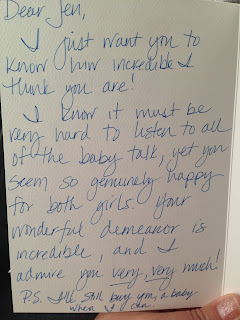 Dear Jen,
I just want you to
know how incredible I
think you are!
I know it must be
very hard to listen to all
of the baby talk, yet you
seem so genuinely happy
for both girls. Your
wonderful demeanor is
incredible, and I
admire you very, very much!
P.S. I'll still buy you a baby
when I can.